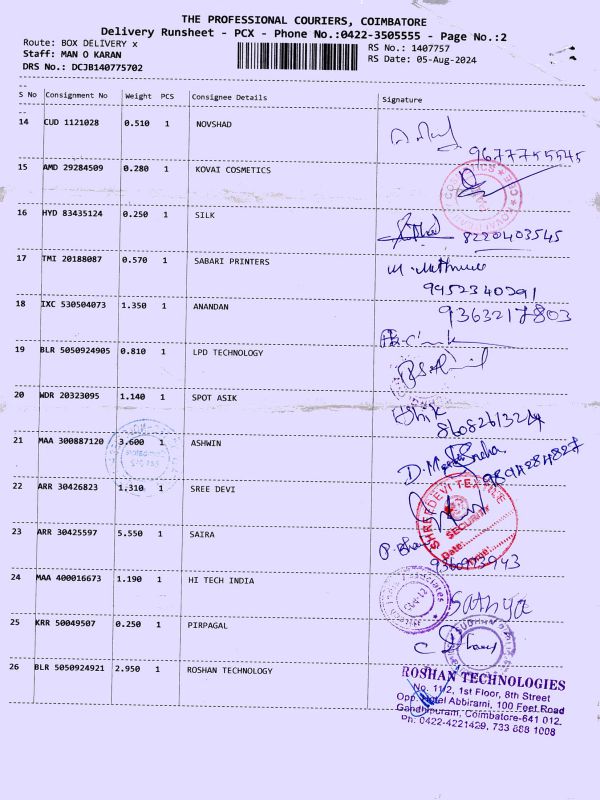 THE PROFESSIONAL COURIERS, COIMBATORE
Delivery Runsheet - PCX - Phone No.:0422-3505555 - Page No.:2
Route: BOX DELIVERY x
Staff: MAN O KARAN
DRS No.: DCJB140775702
RS No.: 1407757
RS Date: 05-Aug-2024
S No Consignment No Weight PCS Consignee Details Signature
14 CUD 1121028 0.510 1 NOVSHAD
9677755545
15 AMD 29284509 0.280 1 KOVAI COSMETICS
16 HYD 83435124 0.250 1 SILK
8220403545
17 TMI 20188087 0.570 1 SABARI PRINTERS
9952340291
18 IXC 530504073 1.350 1 ANANDAN
9363217803
19 BLR 5050924905 0.810 1 LPD TECHNOLOGY
20 WDR 20323095 1.140 1 SPOT ASIK
21 MAA 300887120 3.600 1 ASHWIN
22 ARR 30426823 1.310 1 SREE DEVI
SHREEDEVI TEXTILE
SECURITY
Date:
23 ARR 30425597 5.550 1 SAIRA
24 MAA 400016673 1.190 1 HI TECH INDIA
Sathya
25 KRR 50049507 0.250 1 PIRPAGAL
26 BLR 5050924921 2.950 1 ROSHAN TECHNOLOGY
ROSHAN TECHNOLOGIES
No. 11/2, 1st Floor, 8th Street
Opp. Hotel Abbirami, 100 Feet Road
Gandhipuram, Coimbatore-641 012.
Ph: 0422-4221429, 733 888 1008